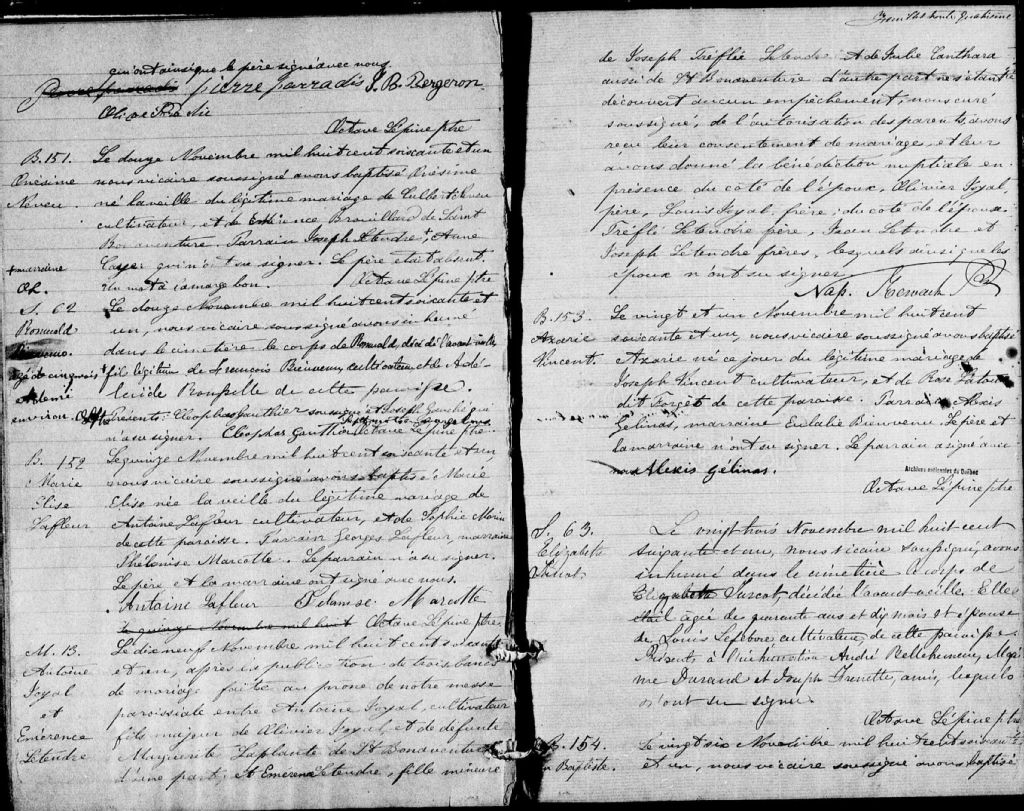 qui ont ainsi que le père signé avec nous
pierre parradis J. B. Bergeron
Octave Lépine ptre
B. 151.
Onésime
Neveu
Le douze Novembre mil huit cent soixante et un
nous vicaire soussigné avons baptisé Onésime
né la veille du légitime mariage de Culbert Neveu
cultivateur, et de Brouillard de Saint
Bonaventure. Parrain Joseph Letendre +, Anne
qui n'ont su signer. Le père était absent.
+ marraine
OL.
Un mot à la marge bon. Octave Lépine ptre
S. 62
Romuald
Bienvenu
âgé de cinq mois
environ. OL ptre
Le douze Novembre mil huit cent soixante et
un, nous vicaire soussigné avons inhumé
dans le cimetière le corps de Romuald, décédé l'avant veille
fils légitime de François Bienvenu, cultivateur et de Adé-
de cette paroisse.
Présents: Cléophas Gauthier soussigné et Joseph qui
n'a su signer. Cléophas Gauthier Octave Lépine ptre
B. 152
Marie
Elise
Lafleur
Le quinze Novembre mil huit cent soixante et un,
nous vicaire soussigné avons baptisé Marie
Elise née la veille du légitime mariage de
Antoine Lafleur cultivateur, et de Sophie Morin
de cette paroisse. Parrain Georges Lafleur marraine
Philonise Marcotte. Le parrain n'a su signer.
Le père et la marraine ont signé avec nous.
Antoine Lafleur Marcotte
le quinze Novembre mil huit Octave Lépine ptre
M. 13.
Antoine
Joyal
et
Emérence
Letendre
Le dix neuf Novembre mil huit cent soixante
et un, après la publication de trois bans
de mariage faite au prone de notre messe
paroissiale entre Antoine Joyal, cultivateur
fils majeur de Olivier Joyal, et de défunte
Marguerite Laplante de St Bonaventure
d'une part; et Emérence Letendre, fille mineure
de Joseph Tréflé Letendre et de Julie Canthara
aussi de St Bonaventure d'autre part ne s'étant
découvert aucun empêchement, nous curé
soussigné, de l'autorisation des parents, avons
reçu leur consentement de mariage, et leur
avons donné la bénédiction nuptiale en
présence du côté de l'époux, Olivier Joyal,
père, Louis Joyal, frère; du côté de l'épouse
Tréflé Letendre père, Jean Letendre et
Joseph Letendre frères, lesquels ainsi que les
époux n'ont su signer
B. 153.
Azarie
Vincent
Le vingt et un Novembre mil huit cent
soixante et un, nous vicaire soussigné avons baptisé
Azarie né ce jour du légitime mariage de
Joseph Vincent cultivateur, et de Rose
dit Forget de cette paroisse. Parrain Alexis
Gélinas, marraine Eulalie Bienvenu. Le père et
la marraine n'ont su signer. Le parrain a signé avec
nous Alexis Gélinas.
Archives nationales du Québec
Octave Lépine ptre
S. 63.
Elizabeth
Le vingt trois Novembre mil huit cent
soixante et un, nous vicaire soussigné, avons
inhumé dans le cimetière le corps de
Elizabeth décédée l'avant veille. Elle
était âgée de quarante ans et dix mois et épouse
de Louis Lefebvre cultivateur, de cette paroisse.
Présents à l'inhumation André Bellehumeur,
Durand et Joseph Frenette, amis, lesquels
n'ont su signer.
Octave Lépine ptre
B. 154.
un Baptiste.
Le vingt six Novembre mil huit cent soixante
et un, nous vicaire soussigné avons baptisé